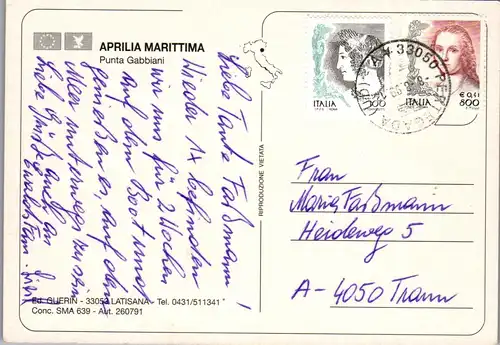 APRILIA MARITTIMA
Punta Gabbiani
Liebe Tante Faßmann!
Wieder 1x befinden
wir uns für 2 Wochen
auf dem Boot und
genießen es, auf dem
Meer unterwegs zu sein
Liebe Grüße auch an
Ed. GUERIN - 33053 LATISANA - Tel. 0431/511341
Conc. SMA 639 - Aut. 260791
RIPRODUZIONE VIETATA
ITALIA
100
ITALIA
800
€ 0,41
33050 PERTEGADA
Frau
Maria Faßmann
Heideweg 5
A-4050 Traun